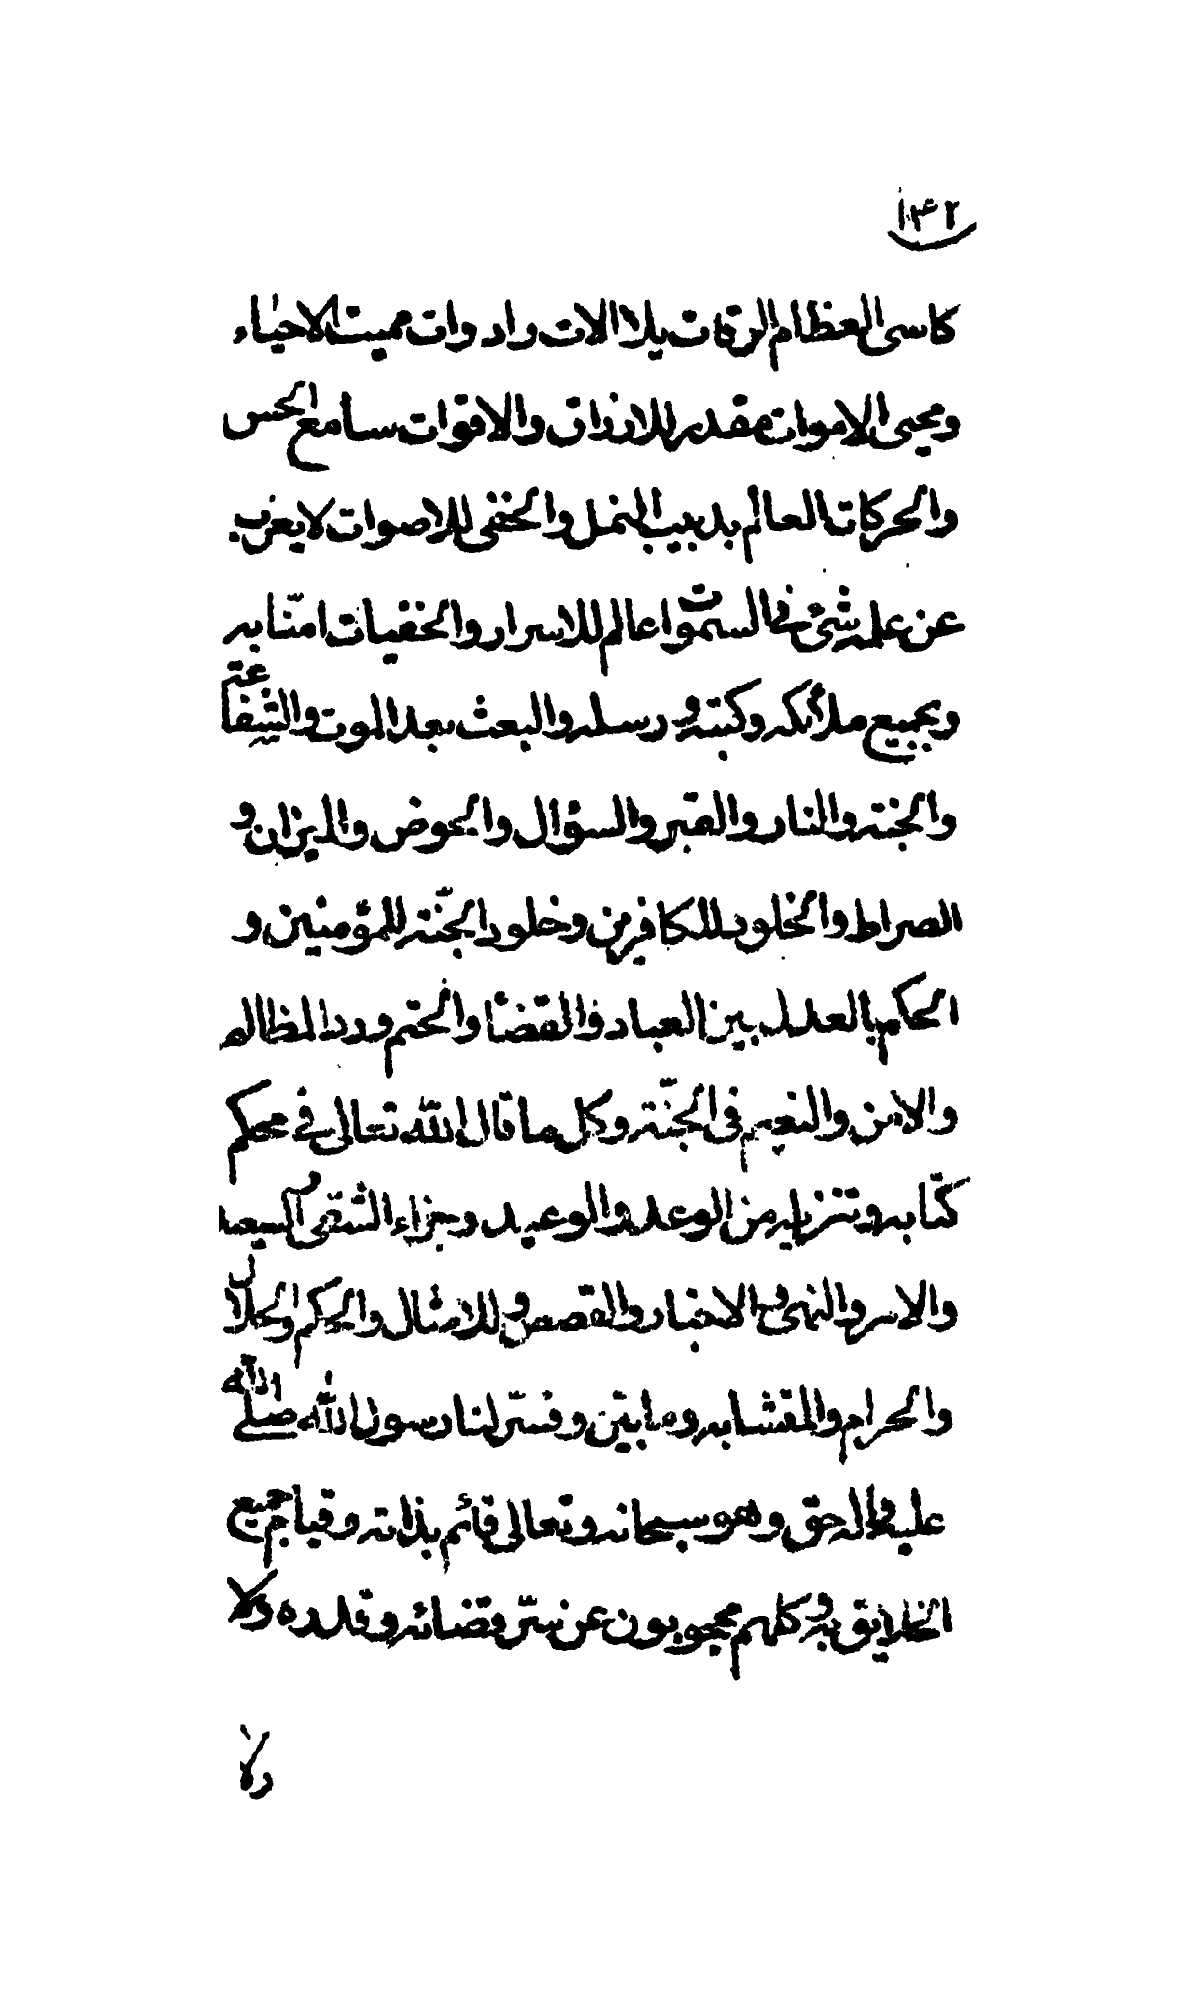 ١٣٢
كاسى العظام الرفات بلا الات وادوات مميت الاحياء
ومحيى الاموات مقدر للارزاق والاقوات سامع الحس
والحركات العالم بدبيب النمل والخفى للاصوات لا يعزب
عن علمه شئ فى السموات عالم للاسرار والخفيات امنّا به
وبجميع ملائكه وكتبه ورسله والبعث بعد الموت والشفاعة
والجنته والنار والقبر والسؤال والحوض والميزان و
الصراط والخلود للكافرين وخلود الجنّته للمؤمنين و
الحكم بالعدل بين العباد فى القضاء والحتم ورد المظالم
والامن والنعيم فى الجنّته وكل ما قال اللّه تعالى فى محكم
كتابه وتنزيله من الوعد والوعيد وجزاء الشقى السعيد
والامر والنهى والاخبار والقصص وللامثال والحكم والحلال
والحرام والمتشابه وما بيّن وفسّر لنا رسول اللّه صلى اللّه
عليه واله حق وهو سبحانه وتعالى قائم بذاته وقيام جميع
الخلايق به وكلهم محجوبون عن سرّ قضائه وقدره ولا
ولا